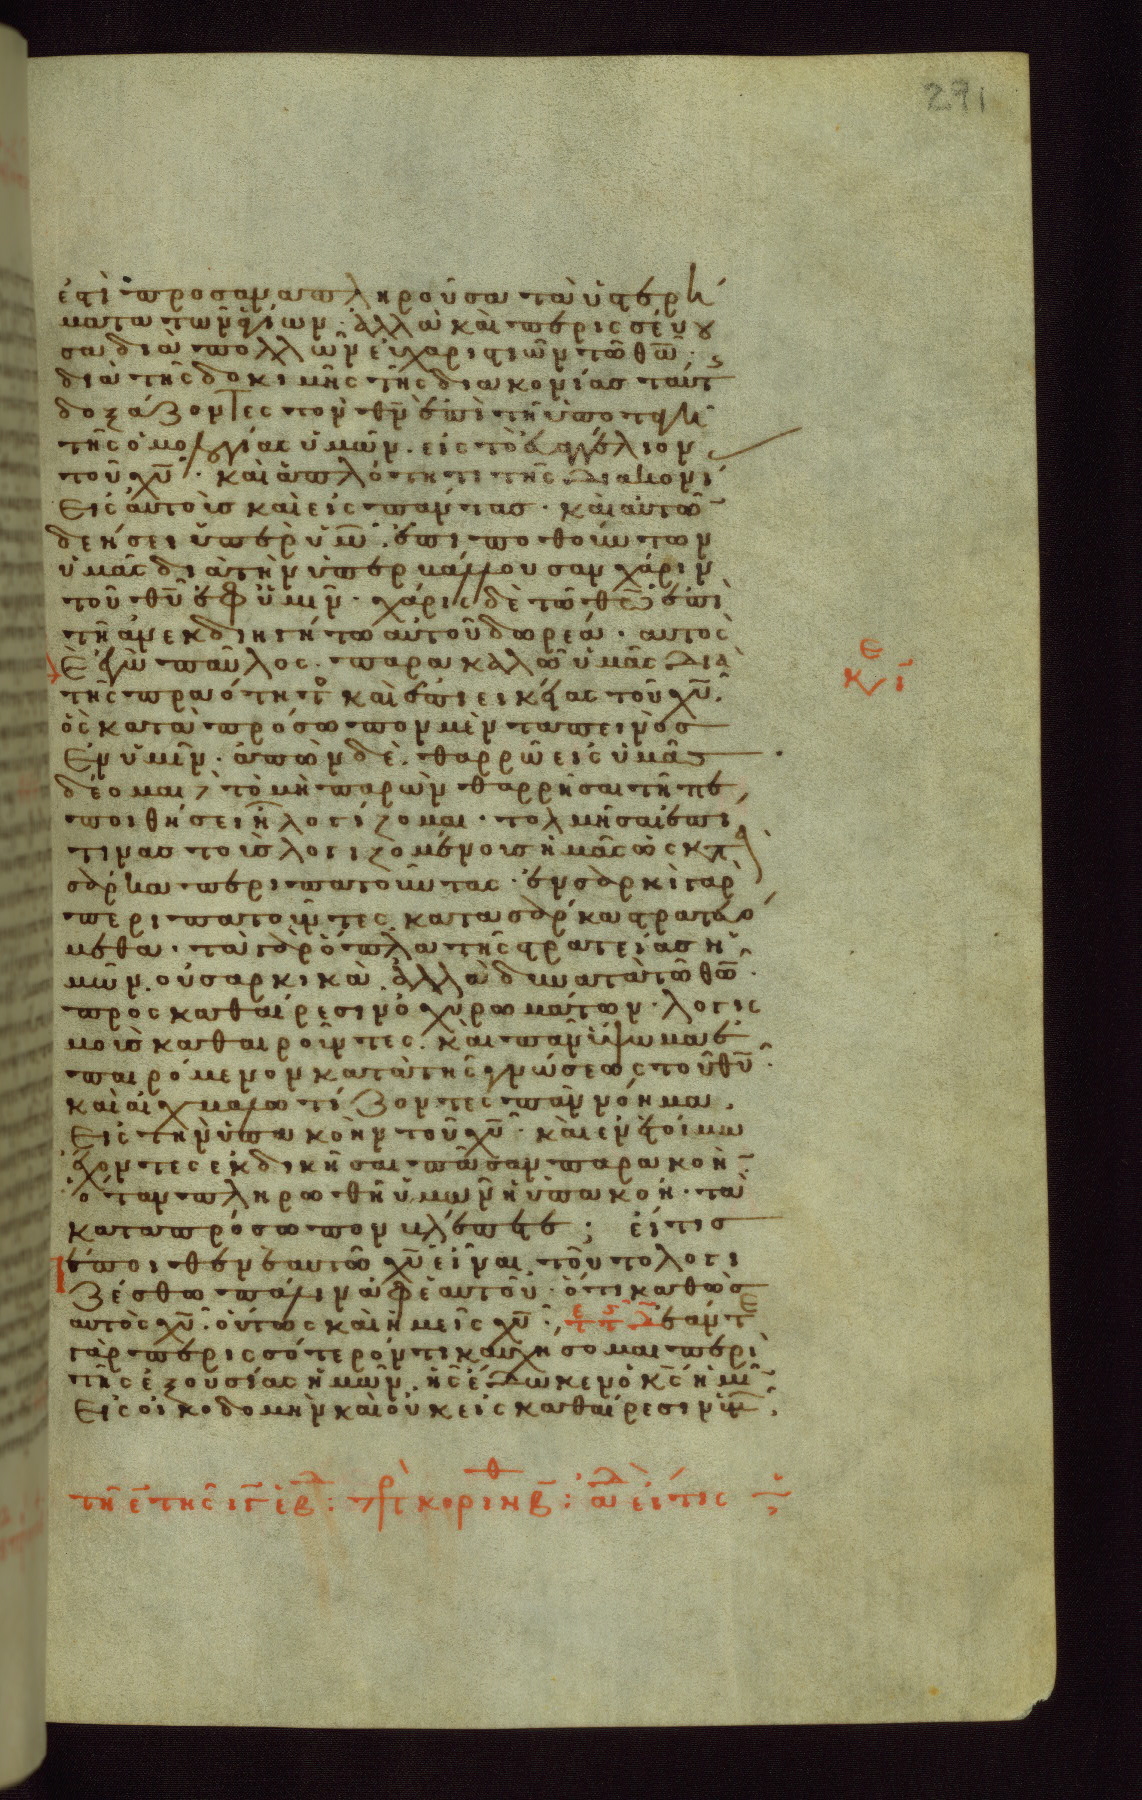 271
ἐστὶ προσαναπληροῦσα τὰ ὑστερή
ματα τῶν ἁγίων· ἀλλὰ καὶ περισσεύου
σα διὰ πολλῶν εὐχαριστιῶν τῶ θῶ·
διὰ τῆς δοκιμῆς τῆς διακονίας ταύτ
δοξάζοντες τὸν θν ἐπὶ τῆ ὑποταγῆ
τῆς ὁμολογίας ὑμῶν· εἰς τὸ εὐαγγέλιον
τοῦ χυ· καὶ ἁπλότητι τῆς διακονί
εἰς αὐτοὺς καὶ εἰς πάντας· καὶ αὐτῶ
δεήσει ὑπὲρ ὑμ· ἐπιποθούντων
ὑμᾶς διὰ τὴν ὑπερβάλλουσαν χάριν
τοῦ θυ ἐφ ὑμῖν· χάρις δὲ τῶ θεῶ ἐπὶ
τῆ ἀνεκδιηγήτω αὐτοῦ δωρεά· αυτὸς
ἐγὼ παῦλος· παρακαλῶ ὑμᾶς διὰ
κε ι
τῆς πραότητο καὶ ἐπιεικείας τοῦ χυ·
ὃς κατὰ πρόσωπον μὲν ταπεινὸς
ἐν ὑμῖν· ἀπὼν δὲ θαρρῶ εἰς ὑμᾶς
δέομαι, τὸ μὴ παρὼν θαρρῆσαι τῆ πε
ποιθήσει ἧ λογίζομαι· τολμῆσαι ἐπί
τινας τοὺς λογιζομένους ἡμᾶς ὡς κατ
σάρκα περιπατοῦντας· ἐν σαρκὶ γὰρ
περιπατοῦντες κατα σάρκα στρατευό
μεθα· τὰ γὰρ ὅπλα τῆς στρατείας ἡ
μῶν οὐ σαρκικὰ ἀλλὰ δυνατὰ τῶ θῶ·
πρὸς καθαίρεσιν ὀχυρωμάτων· λογις
μοὺς καθαιροῦντες· καὶ πᾶν ὕψωμα ἐ
παιρόμενον κατὰ τῆς γνώσεως τοῦ θυ·
καὶ αἰχμαλωτίζοντες πᾶν νόημα
εἰς τὴν ὑπακοὴν τοῦ χυ· καὶ ἐν ἑτοίμω
ἔχοντες ἐκδικῆσαι πᾶσαν παρακοὴ·
ὅταν πληρωθῆ ὑμων ἡ ὑπακοή· τὰ
κατα πρόσωπον βλέπετε; εἴ τις
πέποιθεν ἑαυτῶ χυ εἶναι τοῦτο λογι
ζέσθω πάλιν ἀφ ἑαυτοῦ· ὅτι καθὼς
αὐτὸς χυ· οὕτως καὶ ἡμεῖς χυ· ἐάν τε
γὰρ περισσότερόν τι καυχήσομαι περὶ
τῆς ἐξουσίας ἡμῶν· ἧς ἔδωκεν ὁ κς ἡμ
εἰς οἰκοδομὴν καὶ οὐκ εἰς καθαίρεσιν ὑμ·
τῆ ε τῆς ιγ ἑβδ: πρ κορινθ β: ἀδ εἴ τις